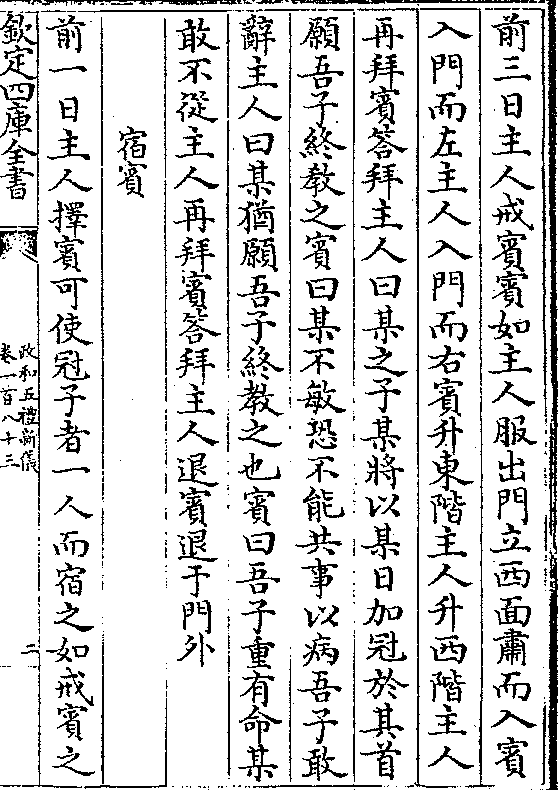 前三日主人戒賓賓如主人服出門立西面肅而入賓
入門而左主人入門而右賓升東階主人升西階主人
再拜賓答拜主人曰某之子某將以某日加冠於其首
願吾子終教之賓曰某不敏恐不能共事以病吾子敢
辭主人曰某猶願吾子終教之也賓曰吾子重有命某
敢不從主人再拜賓答拜主人退賓退于門外
宿賓
前一日主人擇賓可使冠子者一人而宿之如戒賓之
欽定四庫全書
政和五禮新儀
卷一百八十三
二